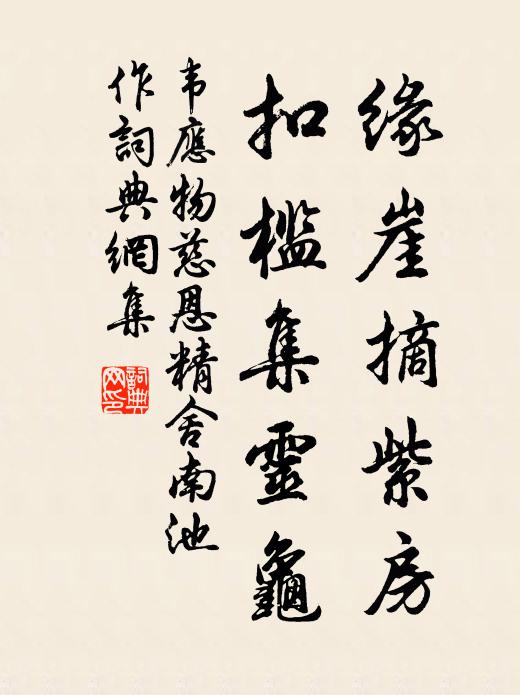 缘崖摘紫房
扣槛集灵龜
韦應物慈恩精舍南池
作詞典網集
詞典網印